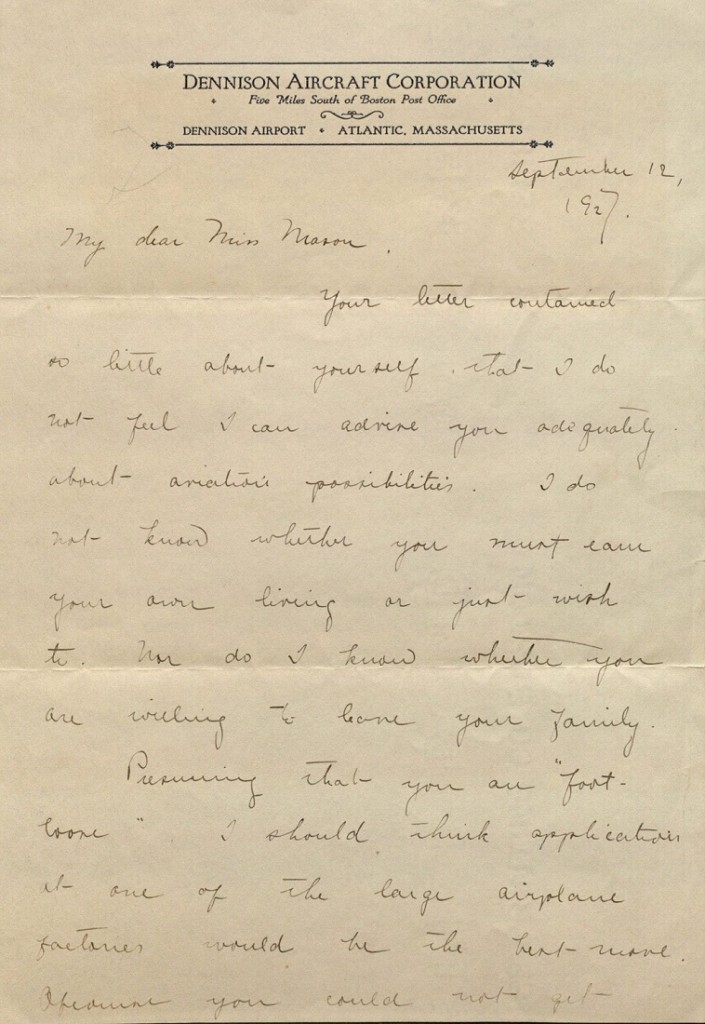 DENNISON AIRCRAFT CORPORATION
Five Miles South of Boston Post Office
DENNISON AIRPORT • ATLANTIC, MASSACHUSETTS
September 12,
1927.
My dear Miss Mason.
Your letter contained
so little about yourself that I do
not feel I can advise you adequately
about aviation possibilities. I do
not know whether you must earn
your own living or just wish
to. Nor do I know whether you
are willing to leave your family.
Presuming that you are "foot-
loose" I should think application
at one of the large airplane
factories would be the best move.
you could not get